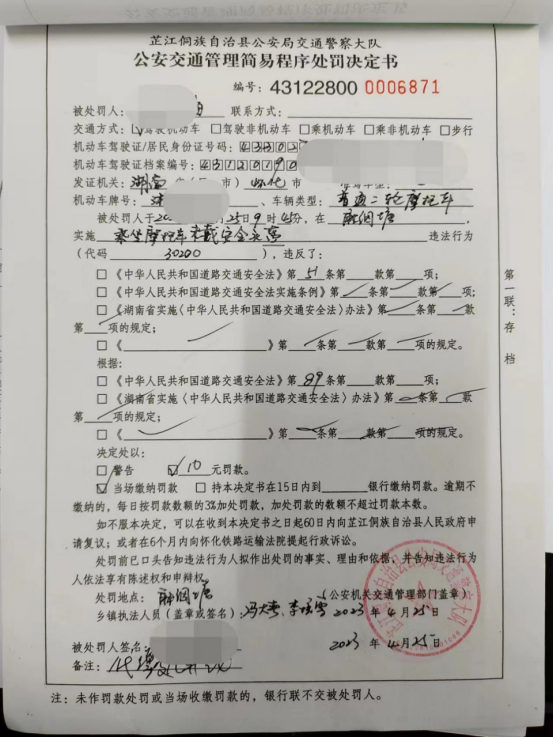 芷江侗族自治县公安局交通警察大队
公安交通管理简易程序处罚决定书
编号：43122800 0006871
被处罚人： 联系方式：
交通方式：☑驾驶机动车 □驾驶非机动车 □乘机动车 □乘非机动车 □步行
机动车驾驶证/居民身份证号码：43302
机动车驾驶证档案编号：431201
发证机关：湖南 市）怀化市
机动车牌号： 、车辆类型：普通二轮摩托车
被处罚人于20 25日9时45分，在
实施 乘坐摩托车未戴安全头盔 违法行为
（代码 30200 ），违反了：
□《中华人民共和国道路交通安全法》第51条第 款第 项；
□《中华人民共和国道路交通安全法实施条例》第 条第 款第 项；
□《湖南省实施〈中华人民共和国道路交通安全法〉办法》第 条第 款
第 项的规定；
□《 》第 条第 款第 项的规定。
根据：
□《中华人民共和国道路交通安全法》第89条第 款第 项；
□《湖南省实施〈中华人民共和国道路交通安全法〉办法》第 条第 款
第 项的规定；
□《 》第 条第 款第 项的规定。
决定处以：
□警告 ☑10元罚款。
☑当场缴纳罚款 □持本决定书在15日内到 银行缴纳罚款。逾期不
缴纳的，每日按罚款数额的3%加处罚款，加处罚款的数额不超过罚款本数。
如不服本决定，可以在收到本决定书之日起60日内向芷江侗族自治县人民政府申
请复议；或者在6个月内向怀化铁路运输法院提起行政诉讼。
处罚前已口头告知违法行为人拟作出处罚的事实、理由和依据，并告知违法行为
人依法享有陈述权和申辩权。
处罚地点： （公安机关交通管理部门盖章）
乡镇执法人员（盖章或签名）： 2023年4月25日
2023年4月25日
被处罚人签名：
备注：
注：未作罚款处罚或当场收缴罚款的，银行联不交被处罚人。
第一联：存档